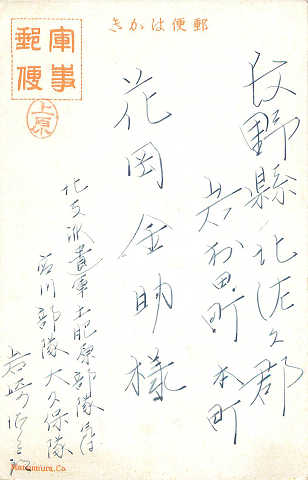 郵便はかき
軍事
郵便
上原
長野縣北佐久郡
岩村田町 本町
花岡金助様
北支派遣軍土肥原部隊
宮川部隊大久保隊
岩崎
Maramura.Co